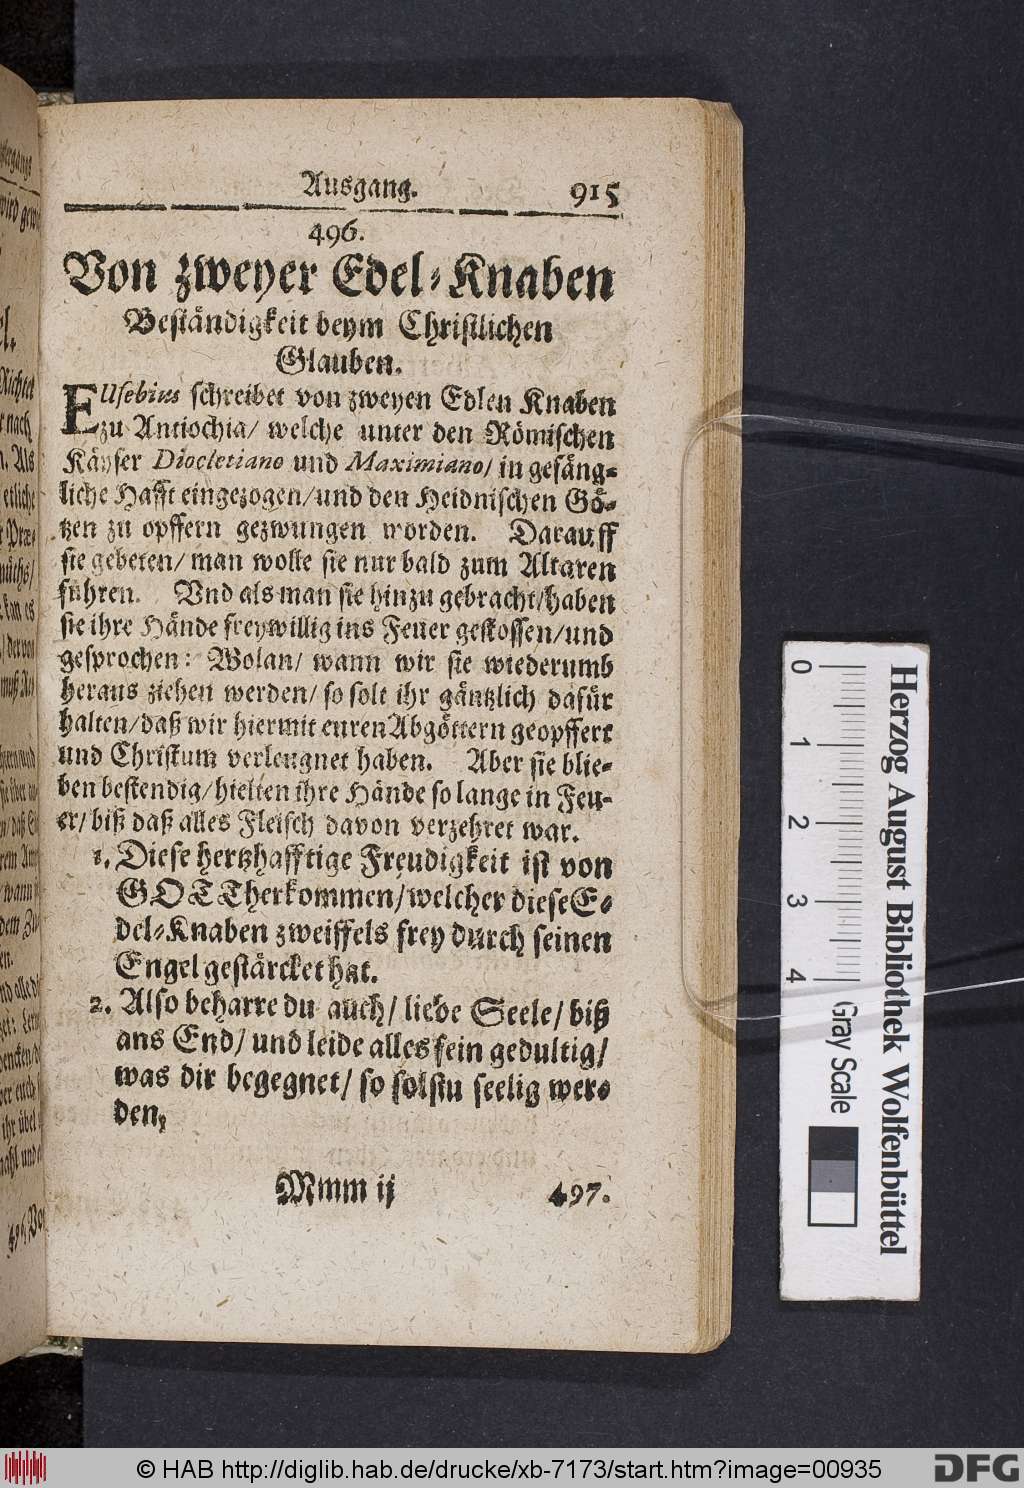 Ausgang. 915
496.
Von zweyer Edel-Knaben
Beständigkeit beym Christlichen
Glauben.
EUsebius schreibet von zweyen Edlen Knaben
zu Antiochia/ welche unter den Römischen
Käyser Diocletiano und Maximiano/ in gefäng-
liche Hafft eingezogen/und den Heidnischen Gö-
tzen zu opffern gezwungen worden. Darauff
sie gebeten/ man wolle sie nur bald zum Altaren
führen. Vnd als man sie hinzu gebracht/haben
sie ihre Hände freywillig ins Feuer gestossen/und
gesprochen: Wolan/ wann wir sie wiederumb
heraus ziehen werden/ so solt ihr gäntzlich dafür
halten/daß wir hiermit euren Abgöttern geopffert
und Christum verleugnet haben. Aber sie blie-
ben bestendig/hielten ihre Hände so lange in Feu-
er/ biß daß alles Fleisch davon verzehret war.
1. Diese hertzhafftige Freudigkeit ist von
GOTT herkommen/welcher diese E-
del-Knaben zweiffels frey durch seinen
Engel gestärcket hat.
2. Also beharre du auch/ liebe Seele/ biß
ans End/ und leide alles fein gedultig/
was dir begegnet/ so solstu seelig wer-
den.
Mmm ij 497.
0 1 2 3 4 Gray Scale
Herzog August Bibliothek Wolfenbüttel
© HAB http://diglib.hab.de/drucke/xb-7173/start.htm?image=00935
DFG